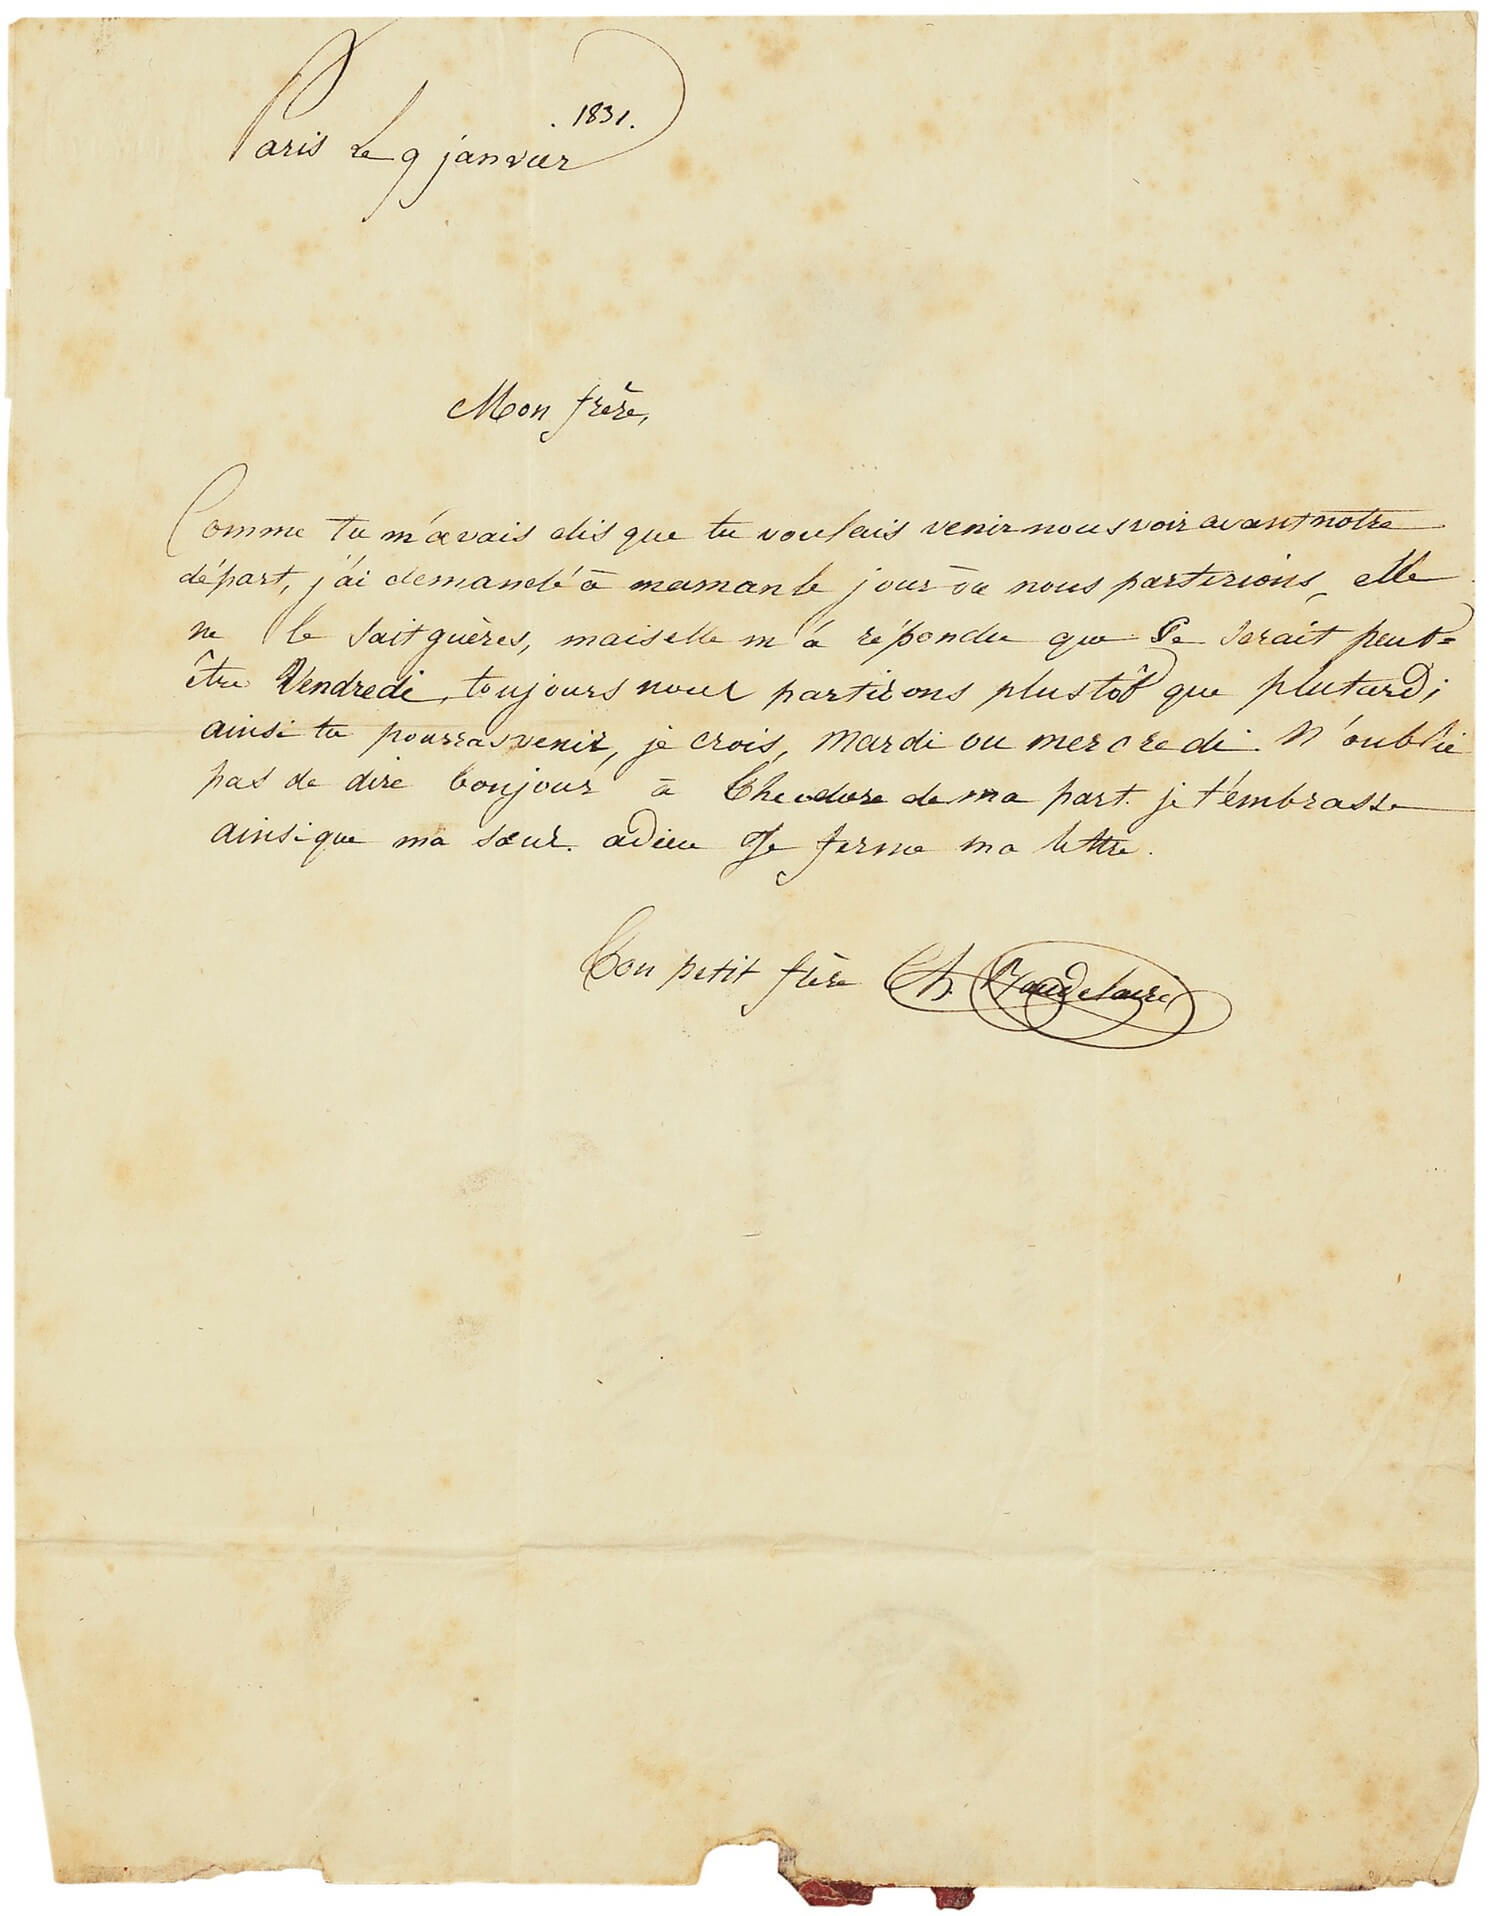 . 1831.
Paris le 9 janvier
Mon frère,
Comme tu m'avais dis que tu voulais venir nous voir avant notre
départ, j'ai demandé à maman le jour où nous partirions, elle
ne le sait guères, mais elle m'a répondu que ce serait peut=
être Vendredi, toujours nous partirons plustôt que plutard;
ainsi tu pourras venir, je crois, mardi ou mercredi. N'oublie
pas de dire bonjour à Theodore de ma part. je t'embrasse
ainsi que ma sœur. adieu Je ferme ma lettre.
Ton petit frère Ch. Baudelaire